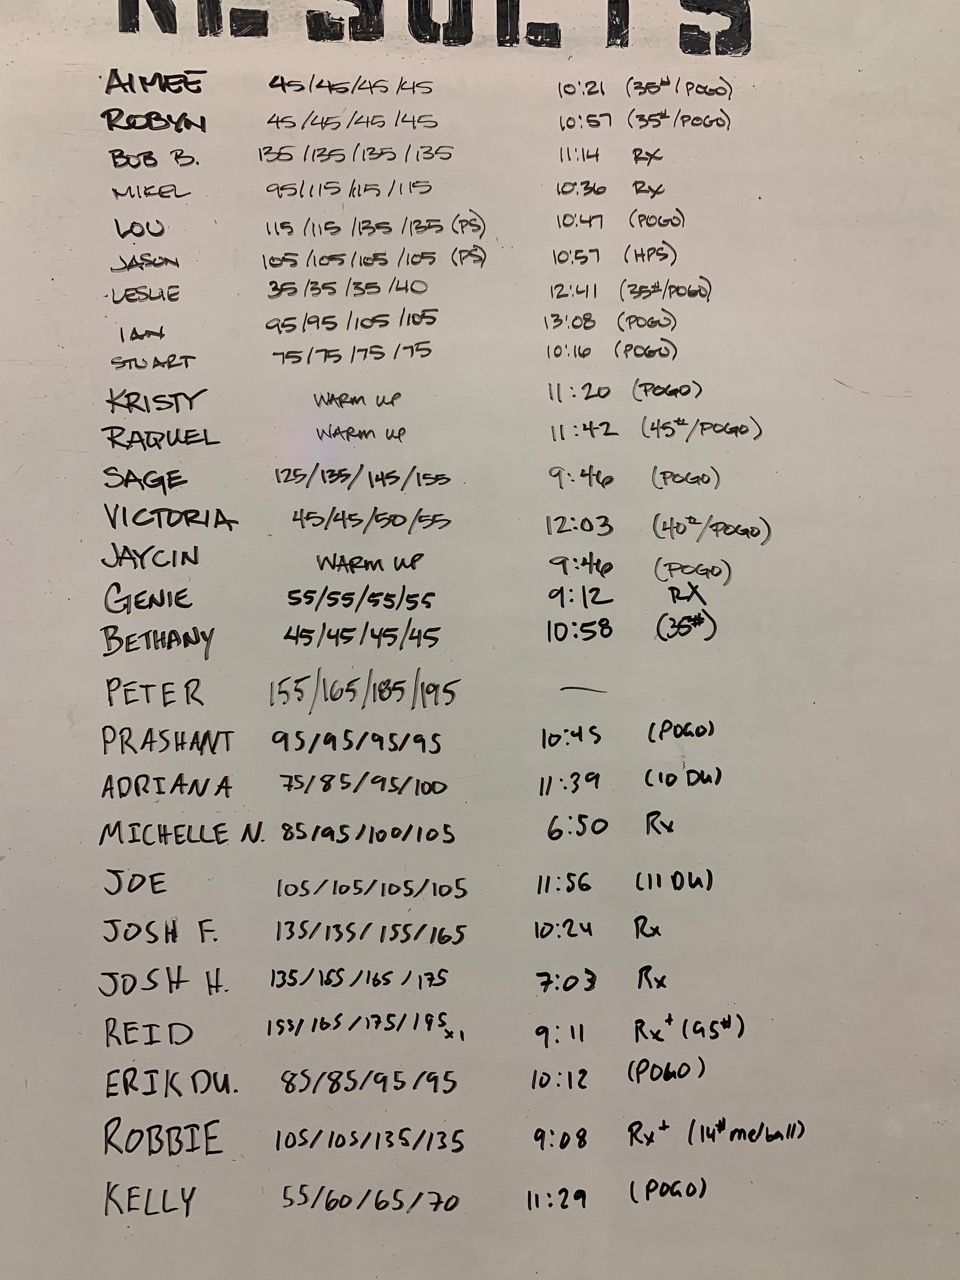 RESULTS
AIMEE 45/45/45/45 10:21 (35#/POGO)
ROBYN 45/45/45/45 10:57 (35#/POGO)
BOB B. 135/135/135/135 11:14 RX
MIKEL 95/115/115/115 10:36 RX
LOU 115/115/135/135 (PS) 10:47 (POGO)
JASON 105/105/105/105 (PS) 10:57 (HPS)
LESLIE 35/35/35/40 12:41 (35#/POGO)
IAN 95/95/105/105 13:08 (POGO)
STUART 75/75/75/75 10:16 (POGO)
KRISTY WARM UP 11:20 (POGO)
RAQUEL WARM UP 11:42 (45#/POGO)
SAGE 125/135/145/155 9:46 (POGO)
VICTORIA 45/45/50/55 12:03 (40#/POGO)
JAYCIN WARM UP 9:46 (POGO)
GENIE 55/55/55/55 9:12 RX
BETHANY 45/45/45/45 10:58 (35#)
PETER 155/165/185/195 —
PRASHANT 95/95/95/95 10:45 (POGO)
ADRIANA 75/85/95/100 11:39 (10 DU)
MICHELLE N. 85/95/100/105 6:50 Rx
JOE 105/105/105/105 11:56 (11 DU)
JOSH F. 135/135/155/165 10:24 Rx
JOSH H. 135/155/165/175 7:03 Rx
REID 155/165/175/195 x1 9:11 Rx+ (95#)
ERIK DU. 85/85/95/95 10:12 (POGO)
ROBBIE 105/105/135/135 9:08 Rx+ (14# medball)
KELLY 55/60/65/70 11:29 (POGO)